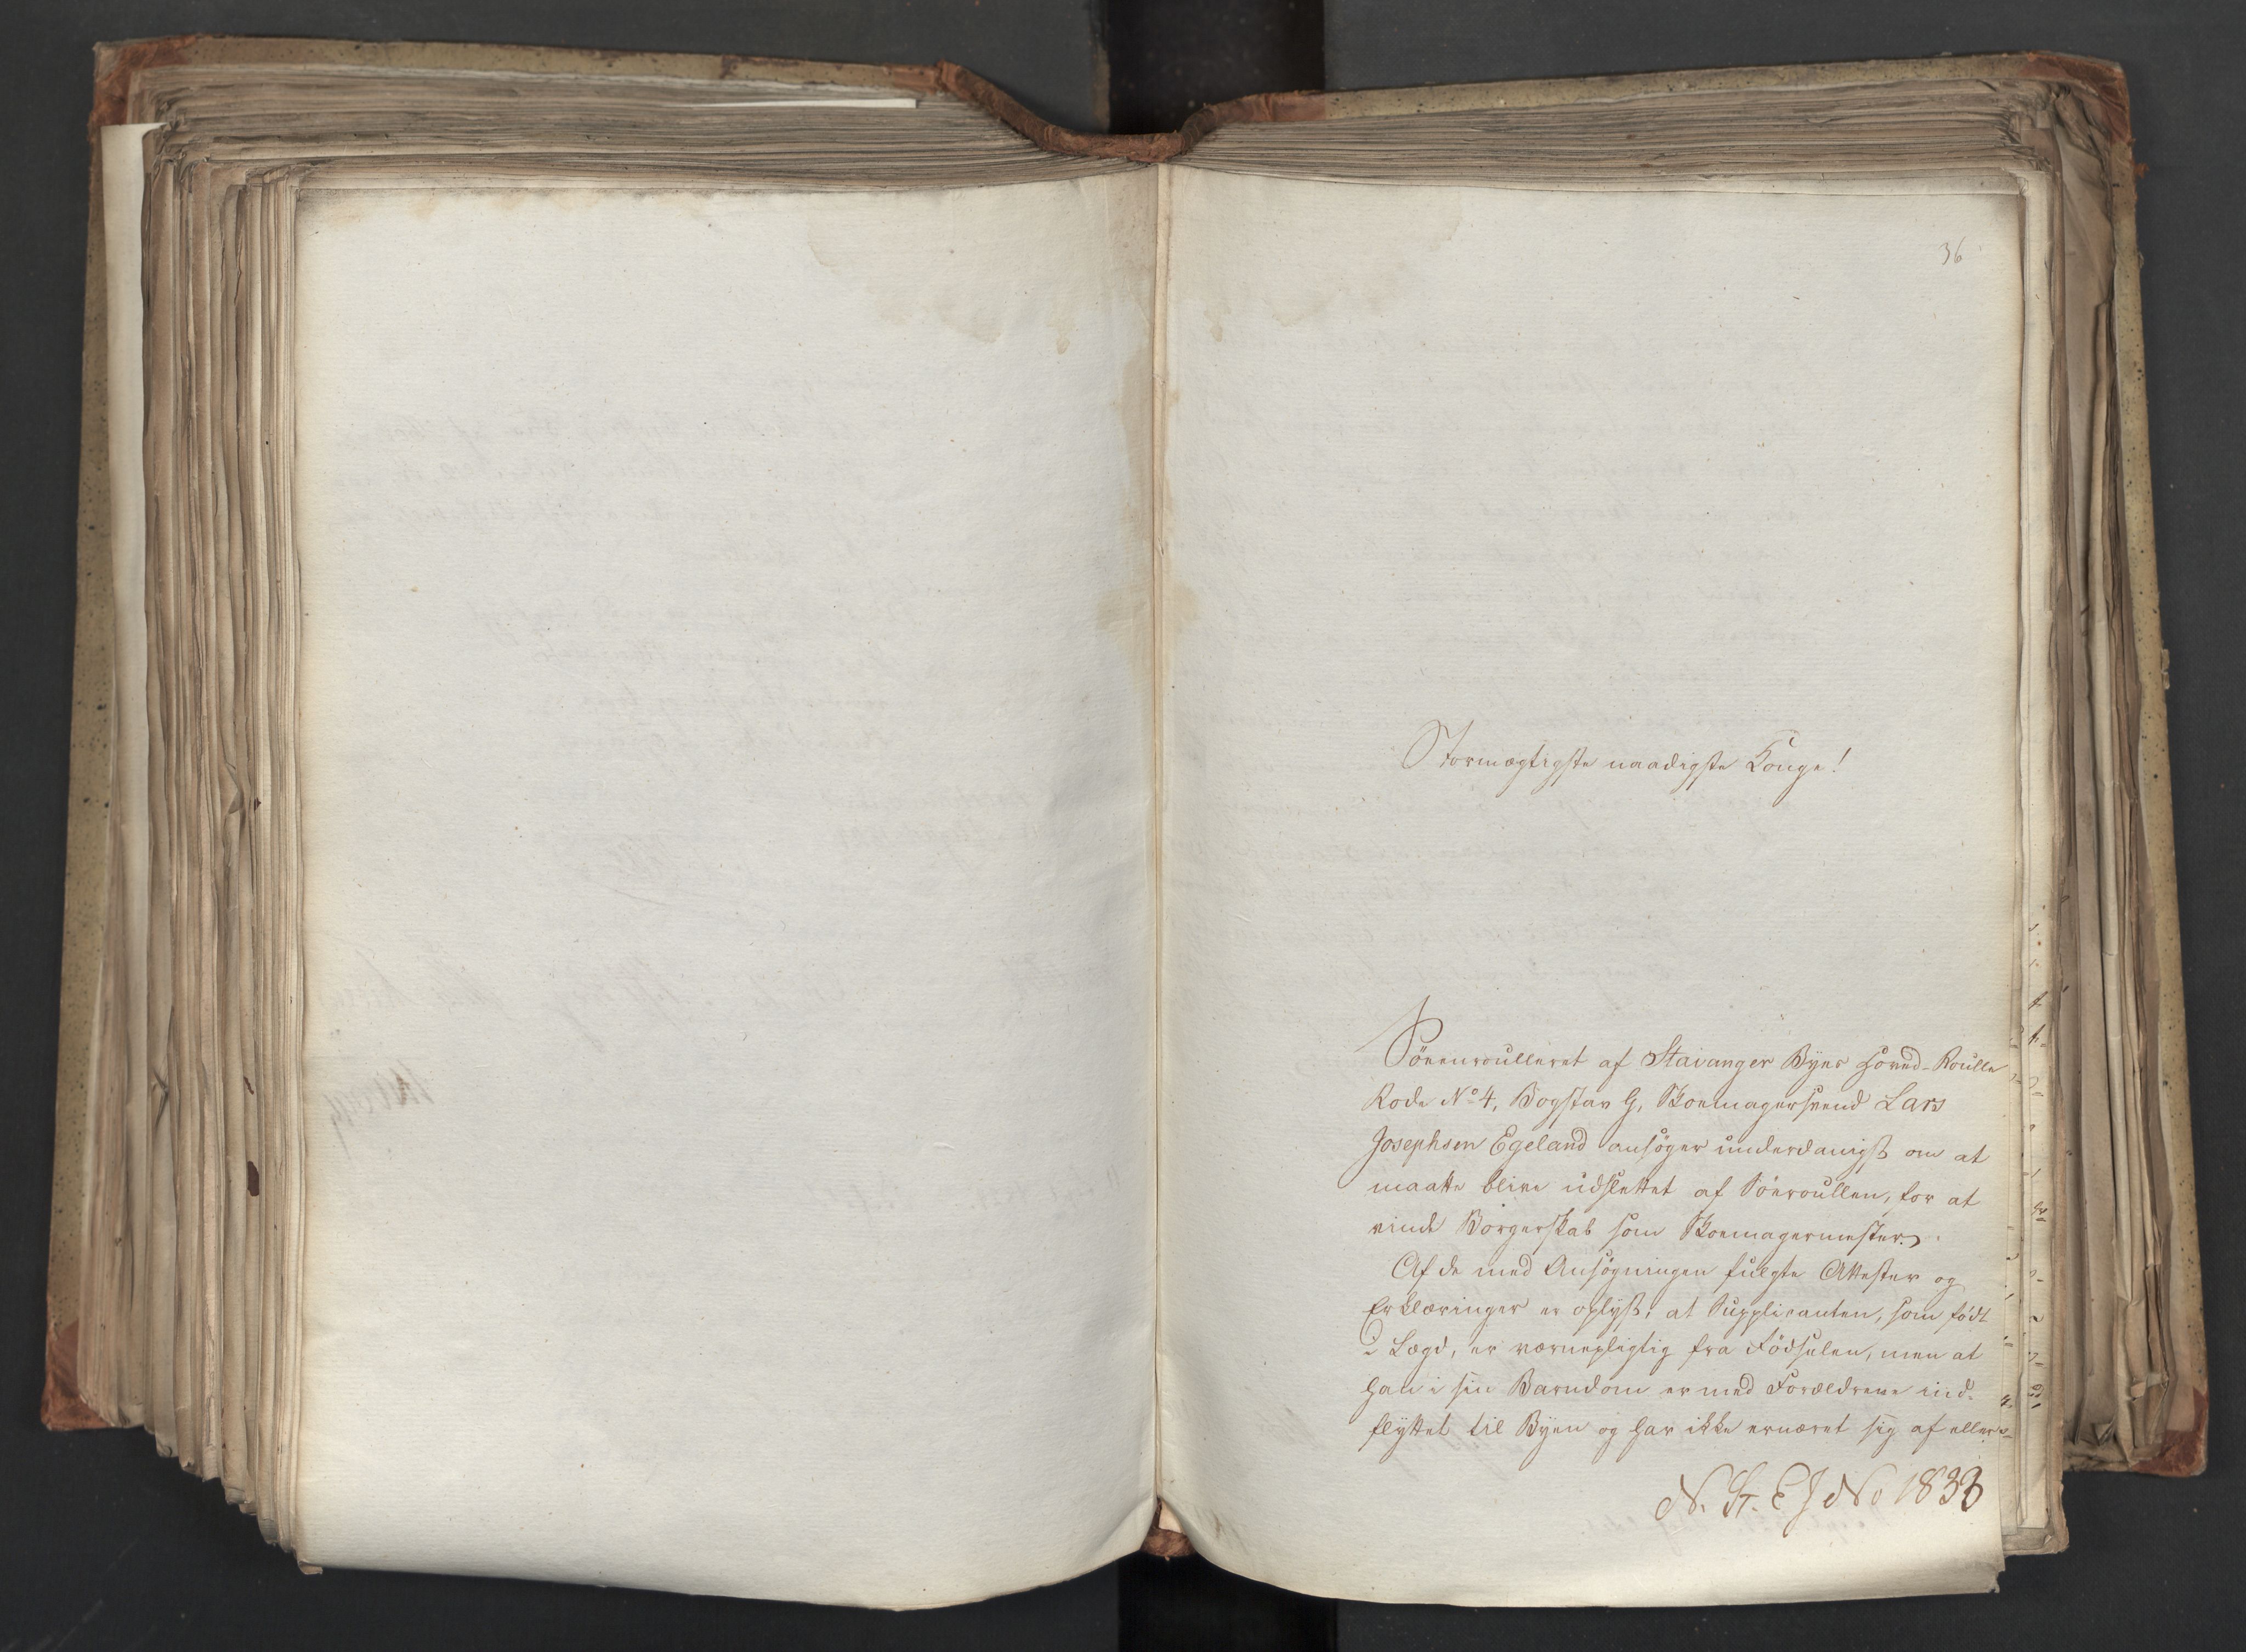 36
Stormægtigste naadigste Konge!
Söeenroulleret af Stavanger Byes Hoved-Roulle
Rode No 4, Bogstav G, Skoemagersvend Lars
Josephsen Egeland ansöger underdanigst om at
maatte blive udslettet af Söeroullen, for at
vinde Borgerskab som Skoemagermester.
Af de med Ansögningen fulgte Attester og
Erklæringer er oplyst, at Supplicanten, som födt
i Lægd, er værnepligtig fra Födselen, men at
han i sin Barndom er med Forældrene ind-
flyttet til Byen og har ikke ernæret sig af eller
N. St. E J No 1833